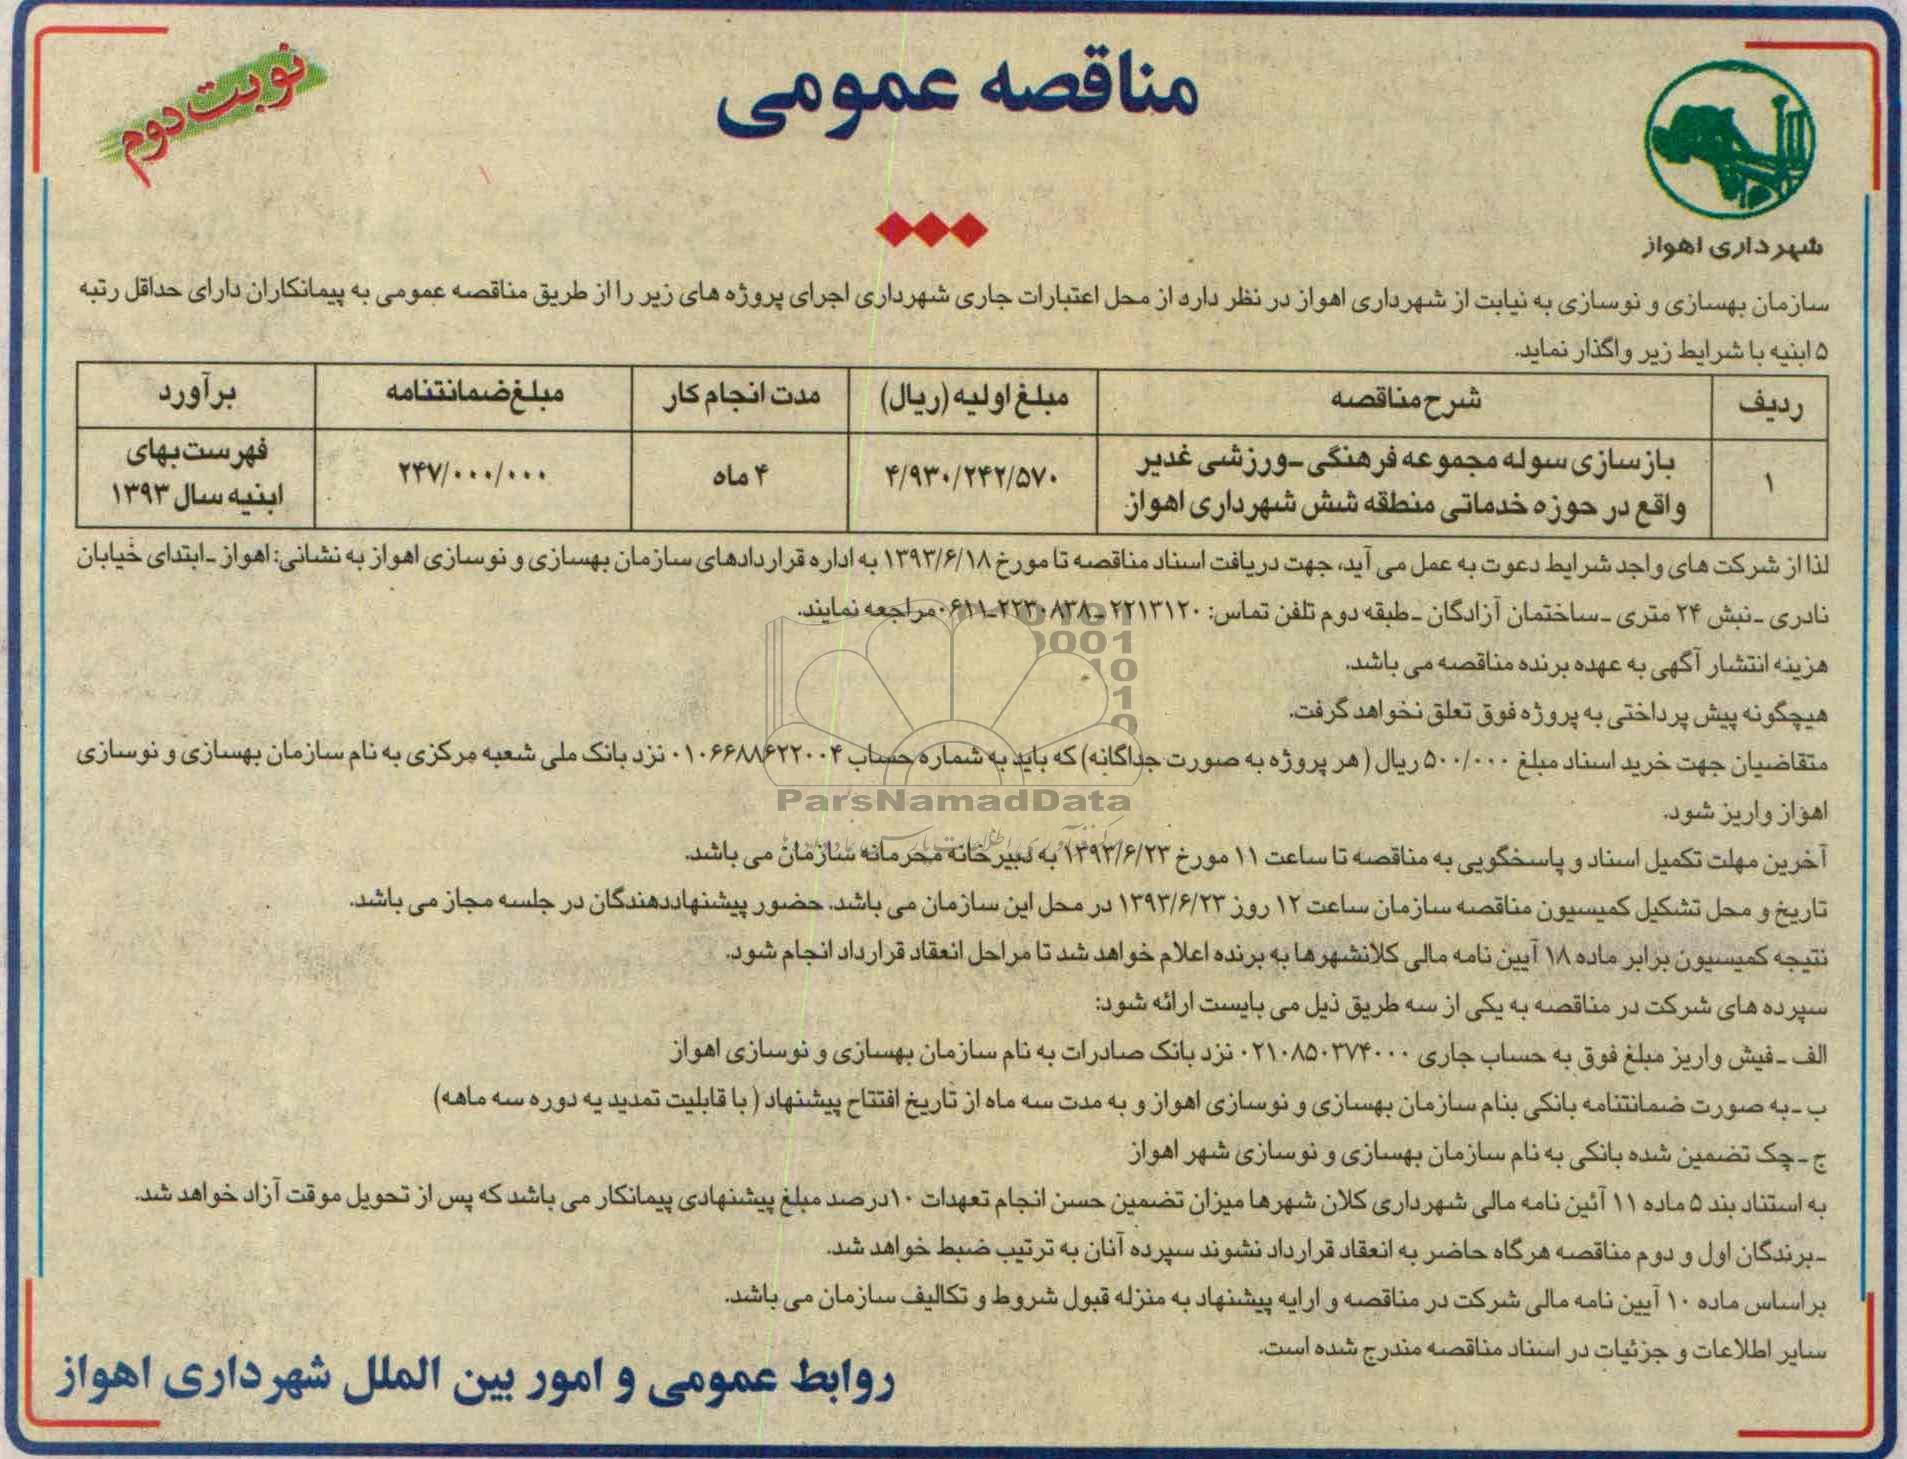 مناقصه عمومی
نوبت دوم
شهرداری اهواز
سازمان بهسازی و نوسازی به نیابت از شهرداری اهواز در نظر دارد از محل اعتبارات جاری شهرداری اجرای پروژه های زیر را از طریق مناقصه عمومی به پیمانکاران دارای حداقل رتبه
۵ ابنیه با شرایط زیر واگذار نماید.
ردیف شرح مناقصه مبلغ اولیه (ریال) مدت انجام کار مبلغ ضمانتنامه برآورد
۱ بازسازی سوله مجموعه فرهنگی ـ ورزشی غدیر ۴/۹۳۰/۲۴۲/۵۷۰ ۴ ماه ۲۴۷/۰۰۰/۰۰۰ فهرست بهای
واقع در حوزه خدماتی منطقه شش شهرداری اهواز ابنیه سال ۱۳۹۳
لذا از شرکت های واجد شرایط دعوت به عمل می آید، جهت دریافت اسناد مناقصه تا مورخ ۱۳۹۳/۶/۱۸ به اداره قراردادهای سازمان بهسازی و نوسازی اهواز به نشانی: اهواز ـ ابتدای خیابان
نادری ـ نبش ۲۴ متری ـ ساختمان آزادگان ـ طبقه دوم تلفن تماس: ۲۲۱۳۱۲۰ ـ ۲۲۳۰۸۳۸ـ۰۶۱۱ مراجعه نمایند.
هزینه انتشار آگهی به عهده برنده مناقصه می باشد.
هیچگونه پیش پرداختی به پروژه فوق تعلق نخواهد گرفت.
متقاضیان جهت خرید اسناد مبلغ ۵۰۰/۰۰۰ ریال (هر پروژه به صورت جداگانه) که باید به شماره حساب ۰۱۰۶۶۸۸۶۲۲۰۰۴ نزد بانک ملی شعبه مرکزی به نام سازمان بهسازی و نوسازی
اهواز واریز شود.
ParsNamadData
آخرین مهلت تکمیل اسناد و پاسخگویی به مناقصه تا ساعت ۱۱ مورخ ۱۳۹۳/۶/۲۳ به دبیرخانه محرمانه سازمان می باشد.
تاریخ و محل تشکیل کمیسیون مناقصه سازمان ساعت ۱۲ روز ۱۳۹۳/۶/۲۳ در محل این سازمان می باشد. حضور پیشنهاددهندگان در جلسه مجاز می باشد.
نتیجه کمیسیون برابر ماده ۱۸ آیین نامه مالی کلانشهرها به برنده اعلام خواهد شد تا مراحل انعقاد قرارداد انجام شود.
سپرده های شرکت در مناقصه به یکی از سه طریق ذیل می بایست ارائه شود:
الف ـ فیش واریز مبلغ فوق به حساب جاری ۰۲۱۰۸۵۰۳۷۴۰۰۰ نزد بانک صادرات به نام سازمان بهسازی و نوسازی اهواز
ب ـ به صورت ضمانتنامه بانکی بنام سازمان بهسازی و نوسازی اهواز و به مدت سه ماه از تاریخ افتتاح پیشنهاد (با قابلیت تمدید یه دوره سه ماهه)
ج ـ چک تضمین شده بانکی به نام سازمان بهسازی و نوسازی شهر اهواز
به استناد بند ۵ ماده ۱۱ آئین نامه مالی شهرداری کلان شهرها میزان تضمین حسن انجام تعهدات ۱۰درصد مبلغ پیشنهادی پیمانکار می باشد که پس از تحویل موقت آزاد خواهد شد.
ـ برندگان اول و دوم مناقصه هرگاه حاضر به انعقاد قرارداد نشوند سپرده آنان به ترتیب ضبط خواهد شد.
براساس ماده ۱۰ آیین نامه مالی شرکت در مناقصه و ارایه پیشنهاد به منزله قبول شروط و تکالیف سازمان می باشد.
سایر اطلاعات و جزئیات در اسناد مناقصه مندرج شده است.
روابط عمومی و امور بین الملل شهرداری اهواز